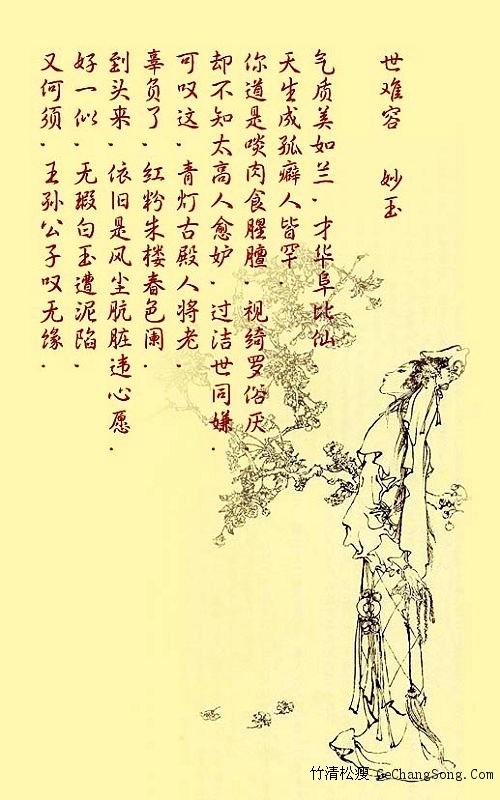 世难容 妙玉
气质美如兰.才华阜比仙
天生成孤癖人皆罕.
你道是啖肉食腥膻.视绮罗俗厌.
却不知太高人愈妒.过洁世同嫌.
可叹这.青灯古殿人将老.
辜负了.红粉朱楼春色阑.
到头来.依旧是风尘肮脏违心愿.
好一似.无瑕白玉遭泥陷.
又何须.王孙公子叹无缘.
竹清松瘦 GeChangSong.Com